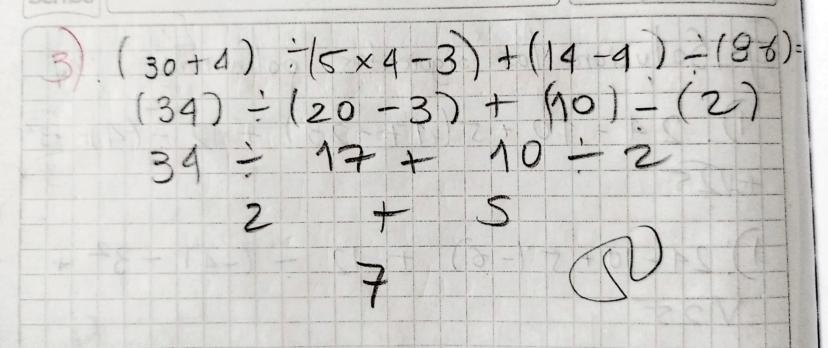 3). (30+4) ÷(5×4-3) + (14-4) ÷(86)=
(34) ÷ (20-3) + (10) ÷ (2)
34 ÷ 17 + 10 ÷ 2
2 + 5
7